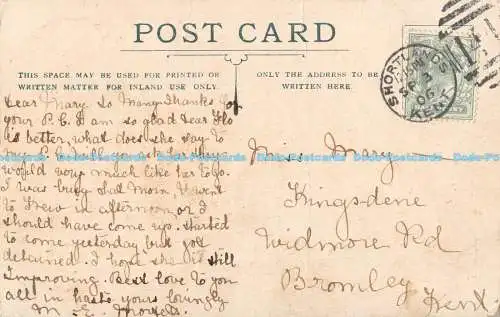 POST CARD
THIS SPACE MAY BE USED FOR PRINTED OR
WRITTEN MATTER FOR INLAND USE ONLY.
ONLY THE ADDRESS TO BE
WRITTEN HERE.
Dear Mary So Many Thanks for
your P.C. I am so glad dear Flo
is better, what does she say to
world very much like her to go.
I was busy Sat Morn, & went
to in afternoon or I
should have come up. started
to come yesterday but got
detained. I hope she is still
Improving. Best love to you
all in haste yours lovingly
M. E.
Miss Mary
Kingsdene
Widmore Rd
Bromley
Kent
SHORTLANDS
SP 3
06
KENT